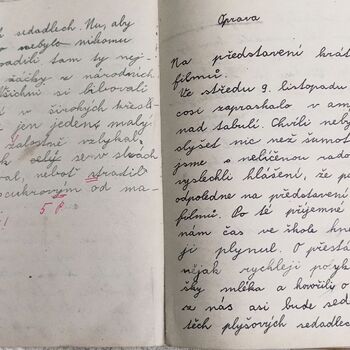 k sedadlech. Nu, aby
nebylo nikomu
posadili tam ty nej-
žáčky z národních
všichni si libovali
v širokých křesíl-
jen jeden malý
žalostně vzlykal
celý se v slzách
val, neboť ztratil
cukrovým od ma-
5
Oprava
Na představení krát
filmů.
Ve středu 9. listopadu
cosi zapraskalo v am
nad tabulí. Chvíli neby
slyšet nic než šumot
jsme s nelíčenou rado
vyslechli hlášení, že p
odpoledne na představení
filmů. Po té příjemné
nám čas ve škole hne
ji plynul. O přestá
nějak rychleji polyk
šky mléka a hovořily o
se nás asi bude sed
těch plyšových sedadlec